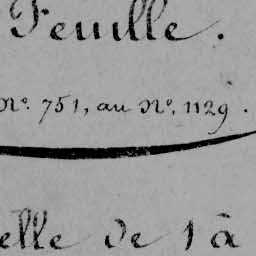 Feuille.
N°. 751, au N°. 1129.
elle de 1 à